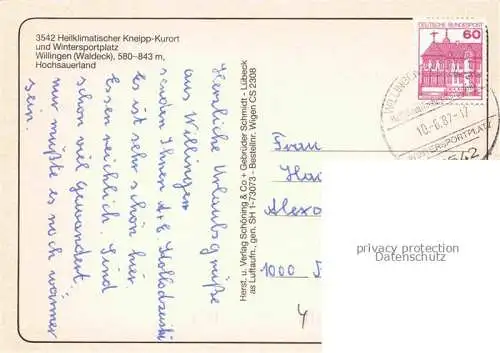 3542 Heilklimatischer Kneipp-Kurort
und Wintersportplatz
Willingen (Waldeck), 580–843 m,
Hochsauerland
Herzliche Urlaubsgrüße
aus Willingen
senden Ihnen
Es ist sehr schön hier
Essen reichlich. Sind
schon viel gewandert.
nur müßte es noch wärmer
sein.
Herst. u. Verlag Schöning & Co + Gebrüder Schmidt - Lübeck
as Luftaufn., gen. SH 1-73073 - Bestellnr. Wigen CS 2308
DEUTSCHE BUNDESPOST
60
10.-6.87-17
WINTERSPORTPLATZ
3542
Frau
Alexa
1000
privacy protection
Datenschutz